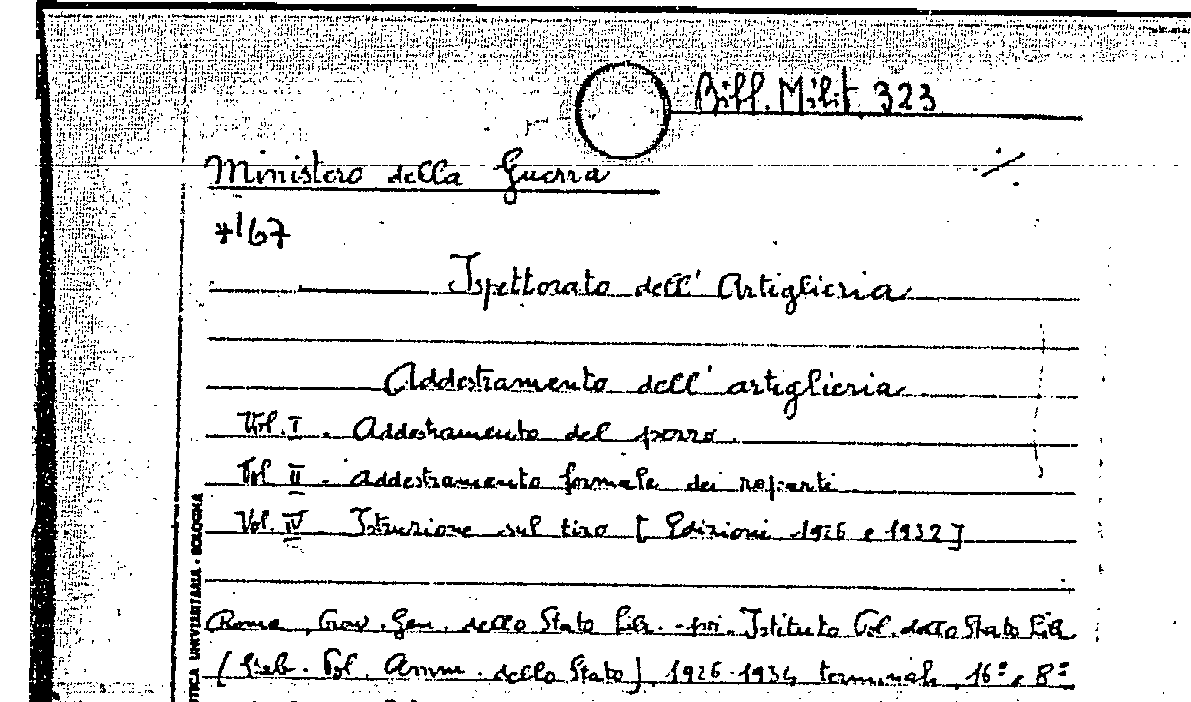 Bibl. Milit. 323
Ministero della Guerra
7167
Ispettorato dell' Artiglieria
Addestramento dell' artiglieria
Vol. I. Addestramento del pezzo.
Vol II. Addestramento formale dei reparti
Vol. IV Istruzione sul tiro [Edizioni 1926 e 1932]
Roma, Gen. dello Stato Lib. poi. Istituto Pol. dello Stato Lib
Pol. Amm. dello Stato] 1926-1934 16° e 8°
UNIVERSITARIA - BOLOGNA